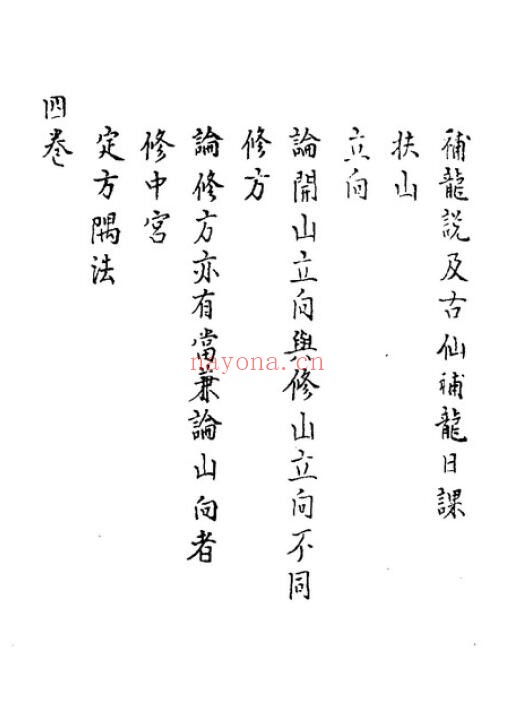 補龍説及古仙補龍日課
扶山
立向
論開山立向與修山立向不同
修方
論修方亦有當兼論山向者
修中宮
定方隅法
四巻
nayona.cn